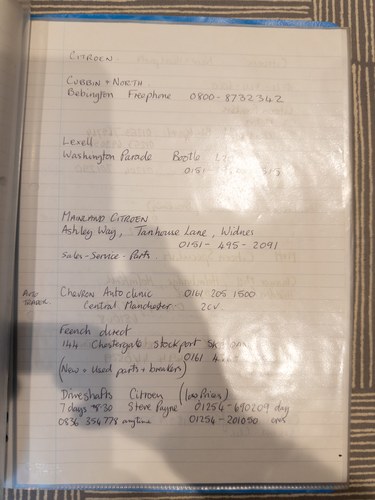 CITROEN
CUBBIN + NORTH
Bebington Freephone 0800-8732342
Lexell
Washington Parade Bootle
0151-
MAINLAND CITROEN
Ashley Way, Tanhouse Lane, Widnes
0151-495-2091
Sales-Service-Parts
AUTO
Chevron Autoclinic 0161 205 1500
Central Manchester 2CV
French direct
144 Chestergate Stockport
0161
(New + Used parts + breakers)
Driveshafts Citroen (low prices)
7 days 8:30 Steve Payne 01254-690209 day
0836 354778 anytime 01254-201050 eves